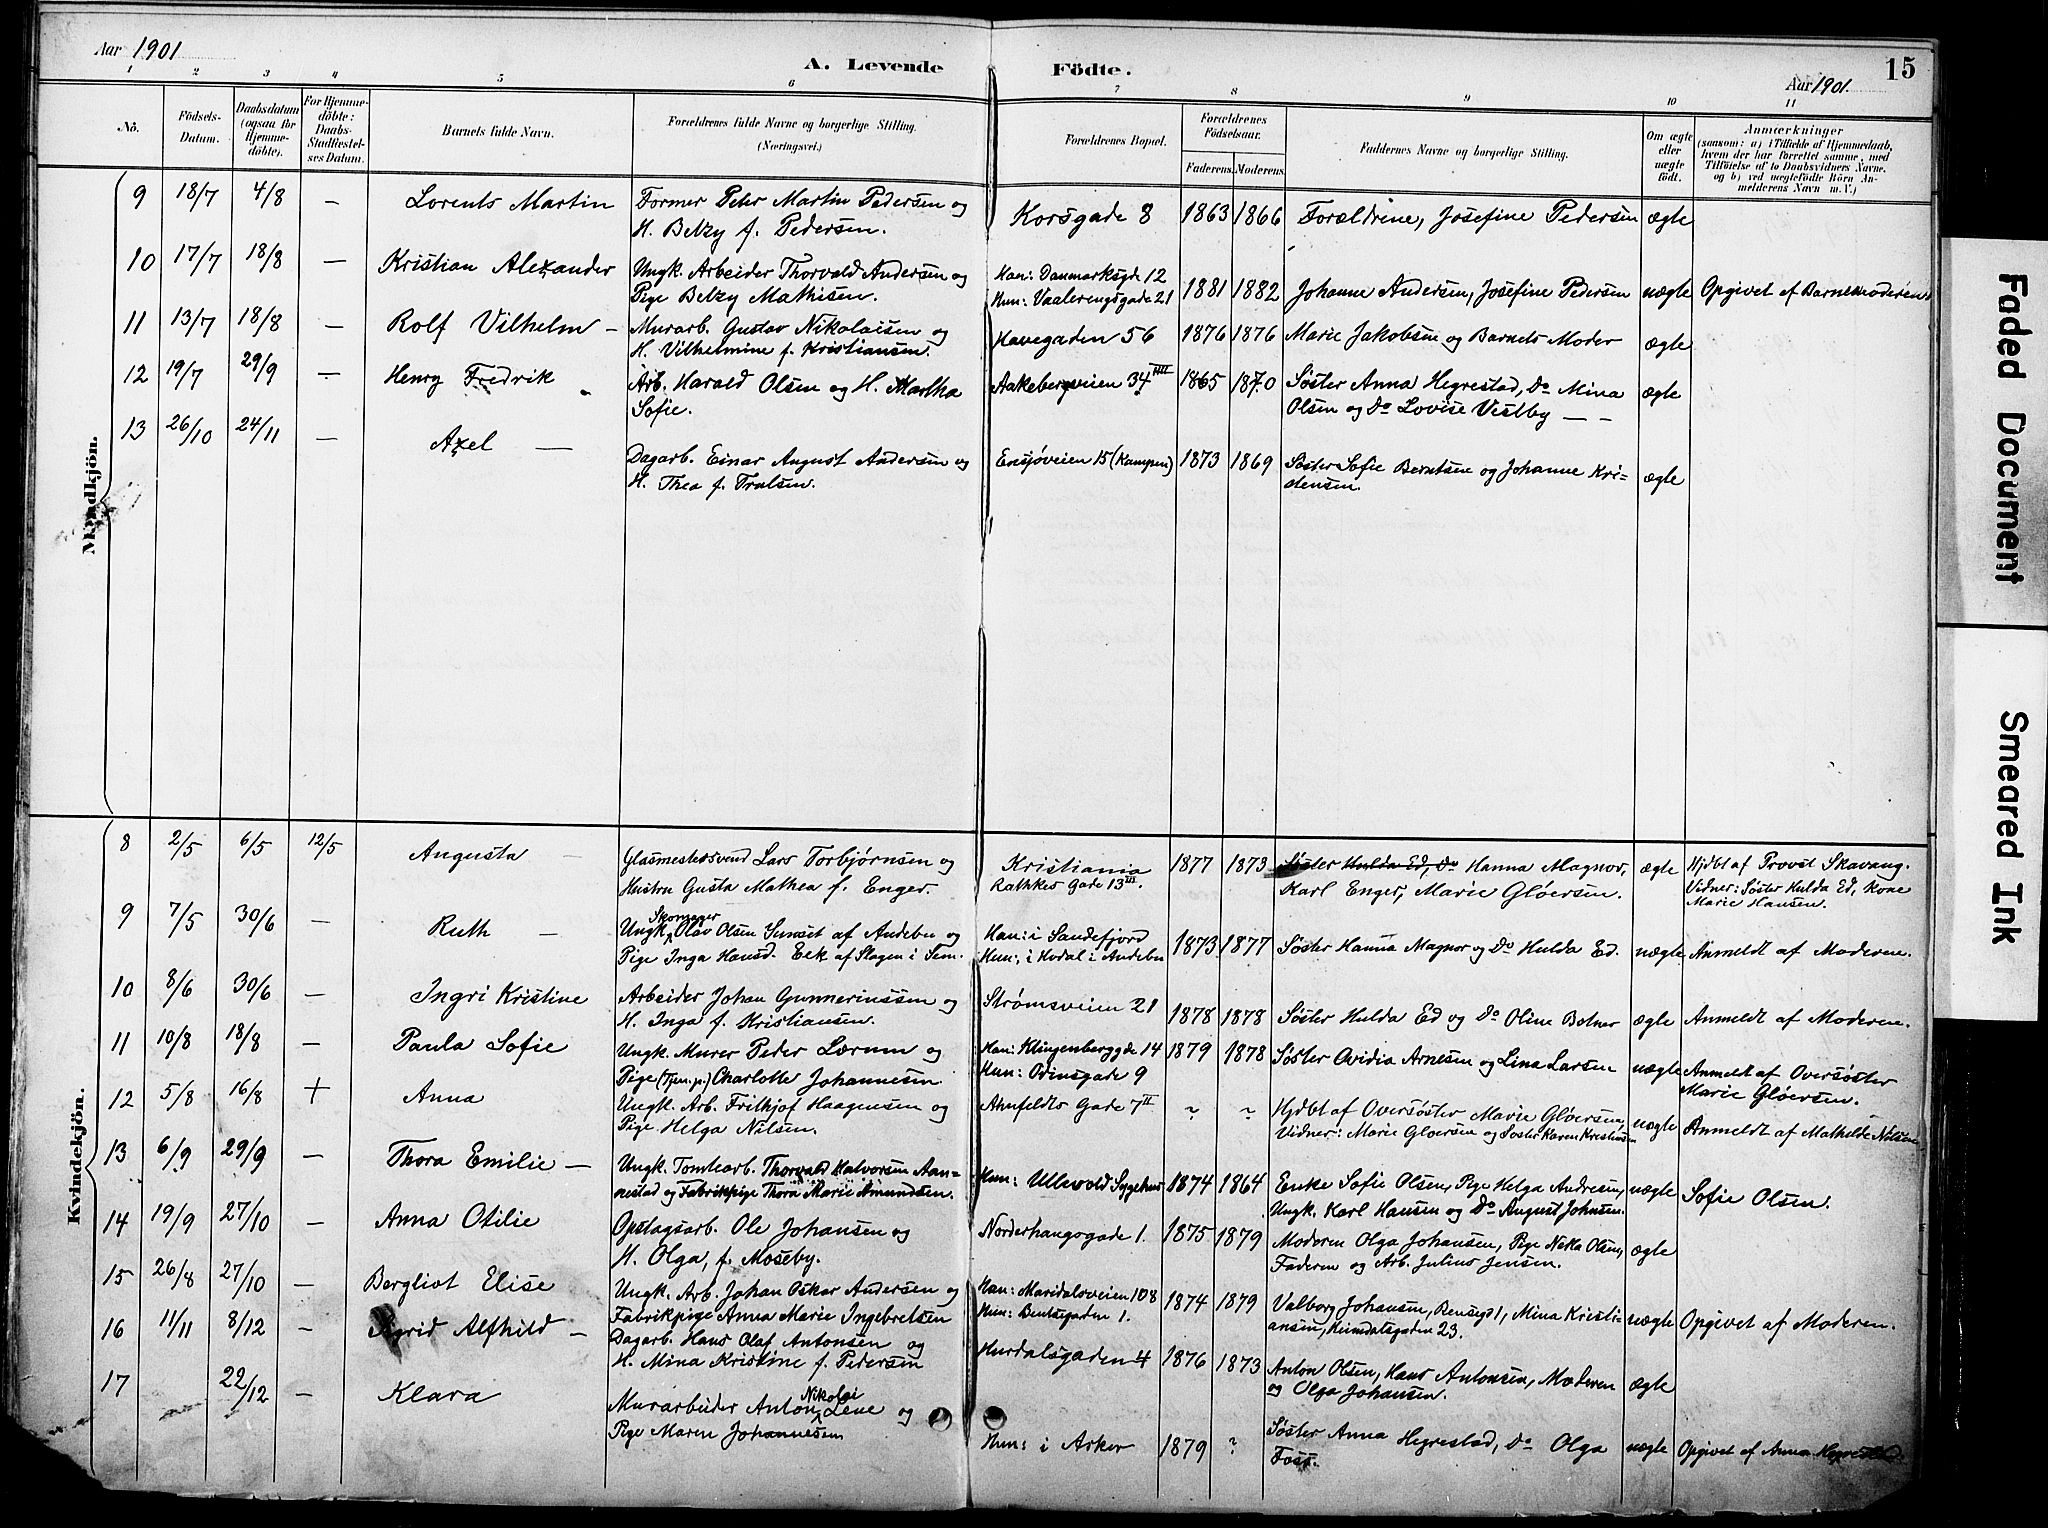 Aar 1901
A. Levende Födte.
Aar 1901.
15
1 2 3 4 5 6 7 8 9 10 11
No.
Födsels-Datum.
Daabsdatum (ogsaa for Hjemme-döbte).
For Hjemme-döbte: Daabs-Stadfestel-ses Datum.
Barnets fulde Navn.
Forældrenes fulde Navne og borgerlige Stilling. (Næringsvei.)
Forældrenes Bopæl.
Forældrenes Födselsaar.
Faderens. Moderens.
Faddernes Navne og borgerlige Stilling.
Om ægte eller uægte födt.
Anmærkninger
(saasom: a) i Tilfælde af Hjemmedaab,
hvem der har forrettet samme, med
Tilföielse af to Daabsvidners Navne.
og b) ved uægtefödte Börn An-
melderens Navn m. V.)
Mandkjön.
9 18/7 4/8 — Lorents Martin Former Peter Martin Pedersen og Korsgade 8 1863 1866 Forældrene, Josefine Pedersen ægte
H. Betzy f. Pedersen.
10 17/7 18/8 — Kristian Alexander Ungk. Arbeider Thorvald Andersen og Han: Danmarksgde 12 1881 1882 Johanne Andersen, Josefine Pedersen uægte Opgivet af Barnemoderen.
Pige Betzy Mathisen. Hun: Vaalerengsgade 21
11 13/7 18/8 — Rolf Vilhelm — Murarb. Gustav Nikolaisen og Havegaden 56 1876 1876 Marie Jakobsen og Barnets Moder ægte
H. Vilhelmine f. Kristiansen.
12 19/7 29/9 — Henry Fredrik Arb. Harald Olsen og H. Martha Aakebergveien 34 IIII 1865 1870 Søster Anna Hegrestad, Do Mina ægte
Sofie. Olsen og Do Lovise Vestby — —
13 26/10 24/11 — Axel — Dagarb. Einar August Andersen og Ensjøveien 15 (Kampen) 1873 1869 Søster Sofie Berntsen og Johanne Kri= ægte
H. Thea f. Trulsen. stensen.
Kvindekjön.
8 2/5 6/5 12/5 Augusta — Glasmestersvend Lars Torbjørnsen og Kristiania 1877 1873 Søster Hulda Ed, Do Hanna Magnor, ægte Hjdbt af Provst Skavang.
Hustru Gusta Mathea f. Enger. Rathkes Gade 13 III. Karl Enger, Marie Gløersen. Vidner: Søster Hulda Ed, Kone
Marie Hansen.
9 7/5 30/6 — Ruth — Ungk. Skomager Olav Olsen af Andebu og Han: i Sandefjord 1873 1877 Søster Hanna Magnor og Do Hulda Ed. uægte Anmeldt af Moderen.
Pige Inga Hansd. Eek af Slagen i Sem. Hun: i Kodal i Andebu
10 8/6 30/6 — Ingri Kristine Arbeider Johan Gunneriussen og Strømsveien 21 1878 1878 Søster Hulda Ed og Do Oline Bolner ægte Anmeldt af Moderen.
H. Inga f. Kristiansen.
11 10/8 18/8 — Paula Sofie Ungk. Murer Peder Lærum og Han: Klingenberggde 14 1879 1878 Søster Ovidia Arnesen og Lina Larsen uægte Anmeldt af Oversøster
Pige (Tjen.p.) Charlotte Johannesen Hun: Odinsgade 9 Marie Gløersen.
12 5/8 16/8 + Anna Ungk. Arb. Frithjof Haagensen og Ahnfeldts Gade 7 II ~ ~ Hjdbt af Oversøster Marie Gløersen, uægte Anmeldt af Mathilde Nilsen
Pige Helga Nilsen. Vidner: Marie Gløersen og Søster Karen
13 6/9 29/9 — Thora Emilie — Ungk. Tomtearb. Thorvald Halvorsen Aan- Hun: Ullevold Sygehus 1874 1864 Enke Sofie Olsen, Pige Helga Andresen, uægte Sofie Olsen.
nestad og Fabrikpige Thora Marie Amundsen. Ungk. Karl Hansen og Do August Johnsen.
14 19/9 27/10 — Anna Otilie Opslagsarb. Ole Johansen og Norderhaugsgade 1. 1875 1879 Moderen Olga Johansen, Pige Neka Olsen, ægte
H. Olga, f. Moseby. Faderen og Arb. Julius Jensen.
15 26/8 27/10 — Bergliot Elise Ungk. Arb. Johan Oskar Andersen og Han: Maridalsveien 108 1874 1879 Valborg Johansen, Bensegd 1, Mina Kristi- uægte Opgivet af Moderen.
Fabrikpige Anna Marie Ingebretsen Hun: Bentsegaden 1. ansen, Heimdalsgaden 23.
16 11/11 8/12 — Sigrid Alfhild — Dagarb. Hans Olaf Antonsen og Hurdalsgaden 4 1876 1873 Anton Olsen, Hans Antonsen, Moderen ægte
H. Mina Kristine f. Pedersen og Olga Johansen.
17 22/12 — Klara Murarbeider Anton Nikolai Lene og Hun: i Aker 1879 ? Søster Anna Hegrestad, Do Olga uægte Opgivet af Anna Hegrestad.
Pige Maren Johannesen Foss.
Faded Document
Smeared Ink